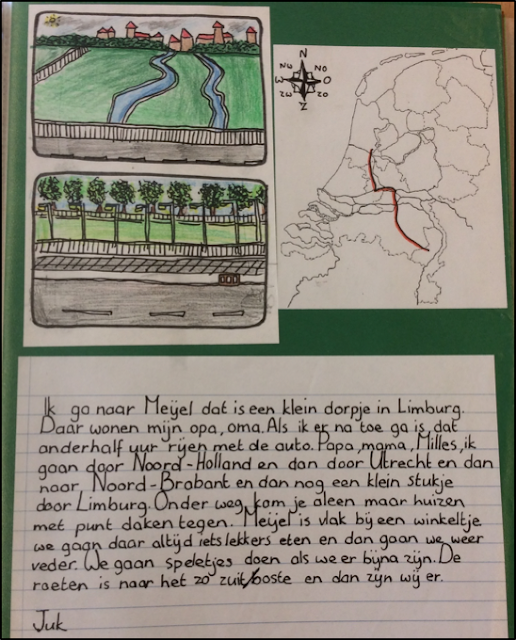 N
NW NO
W O
ZW ZO
Z
Ik ga naar Meijel dat is een klein dorpje in Limburg.
Daar wonen mijn opa, oma. Als ik er na toe ga is dat
anderhalf uur rijen met de auto. Papa, mama, Milles, ik
gaan door Noord-Holland en dan door Utrecht en dan
naar Noord-Brabant en dan nog een klein stukje
door Limburg. Onder weg kom je aleen maar huizen
met punt daken tegen. Meijel is vlak bij een winkeltje
we gaan daar altijd iets lekkers eten en dan gaan we weer
veder. We gaan speletjes doen als we er bijna zijn. De
roeten is naar het zo zuit/ooste en dan zijn wij er.
Juk